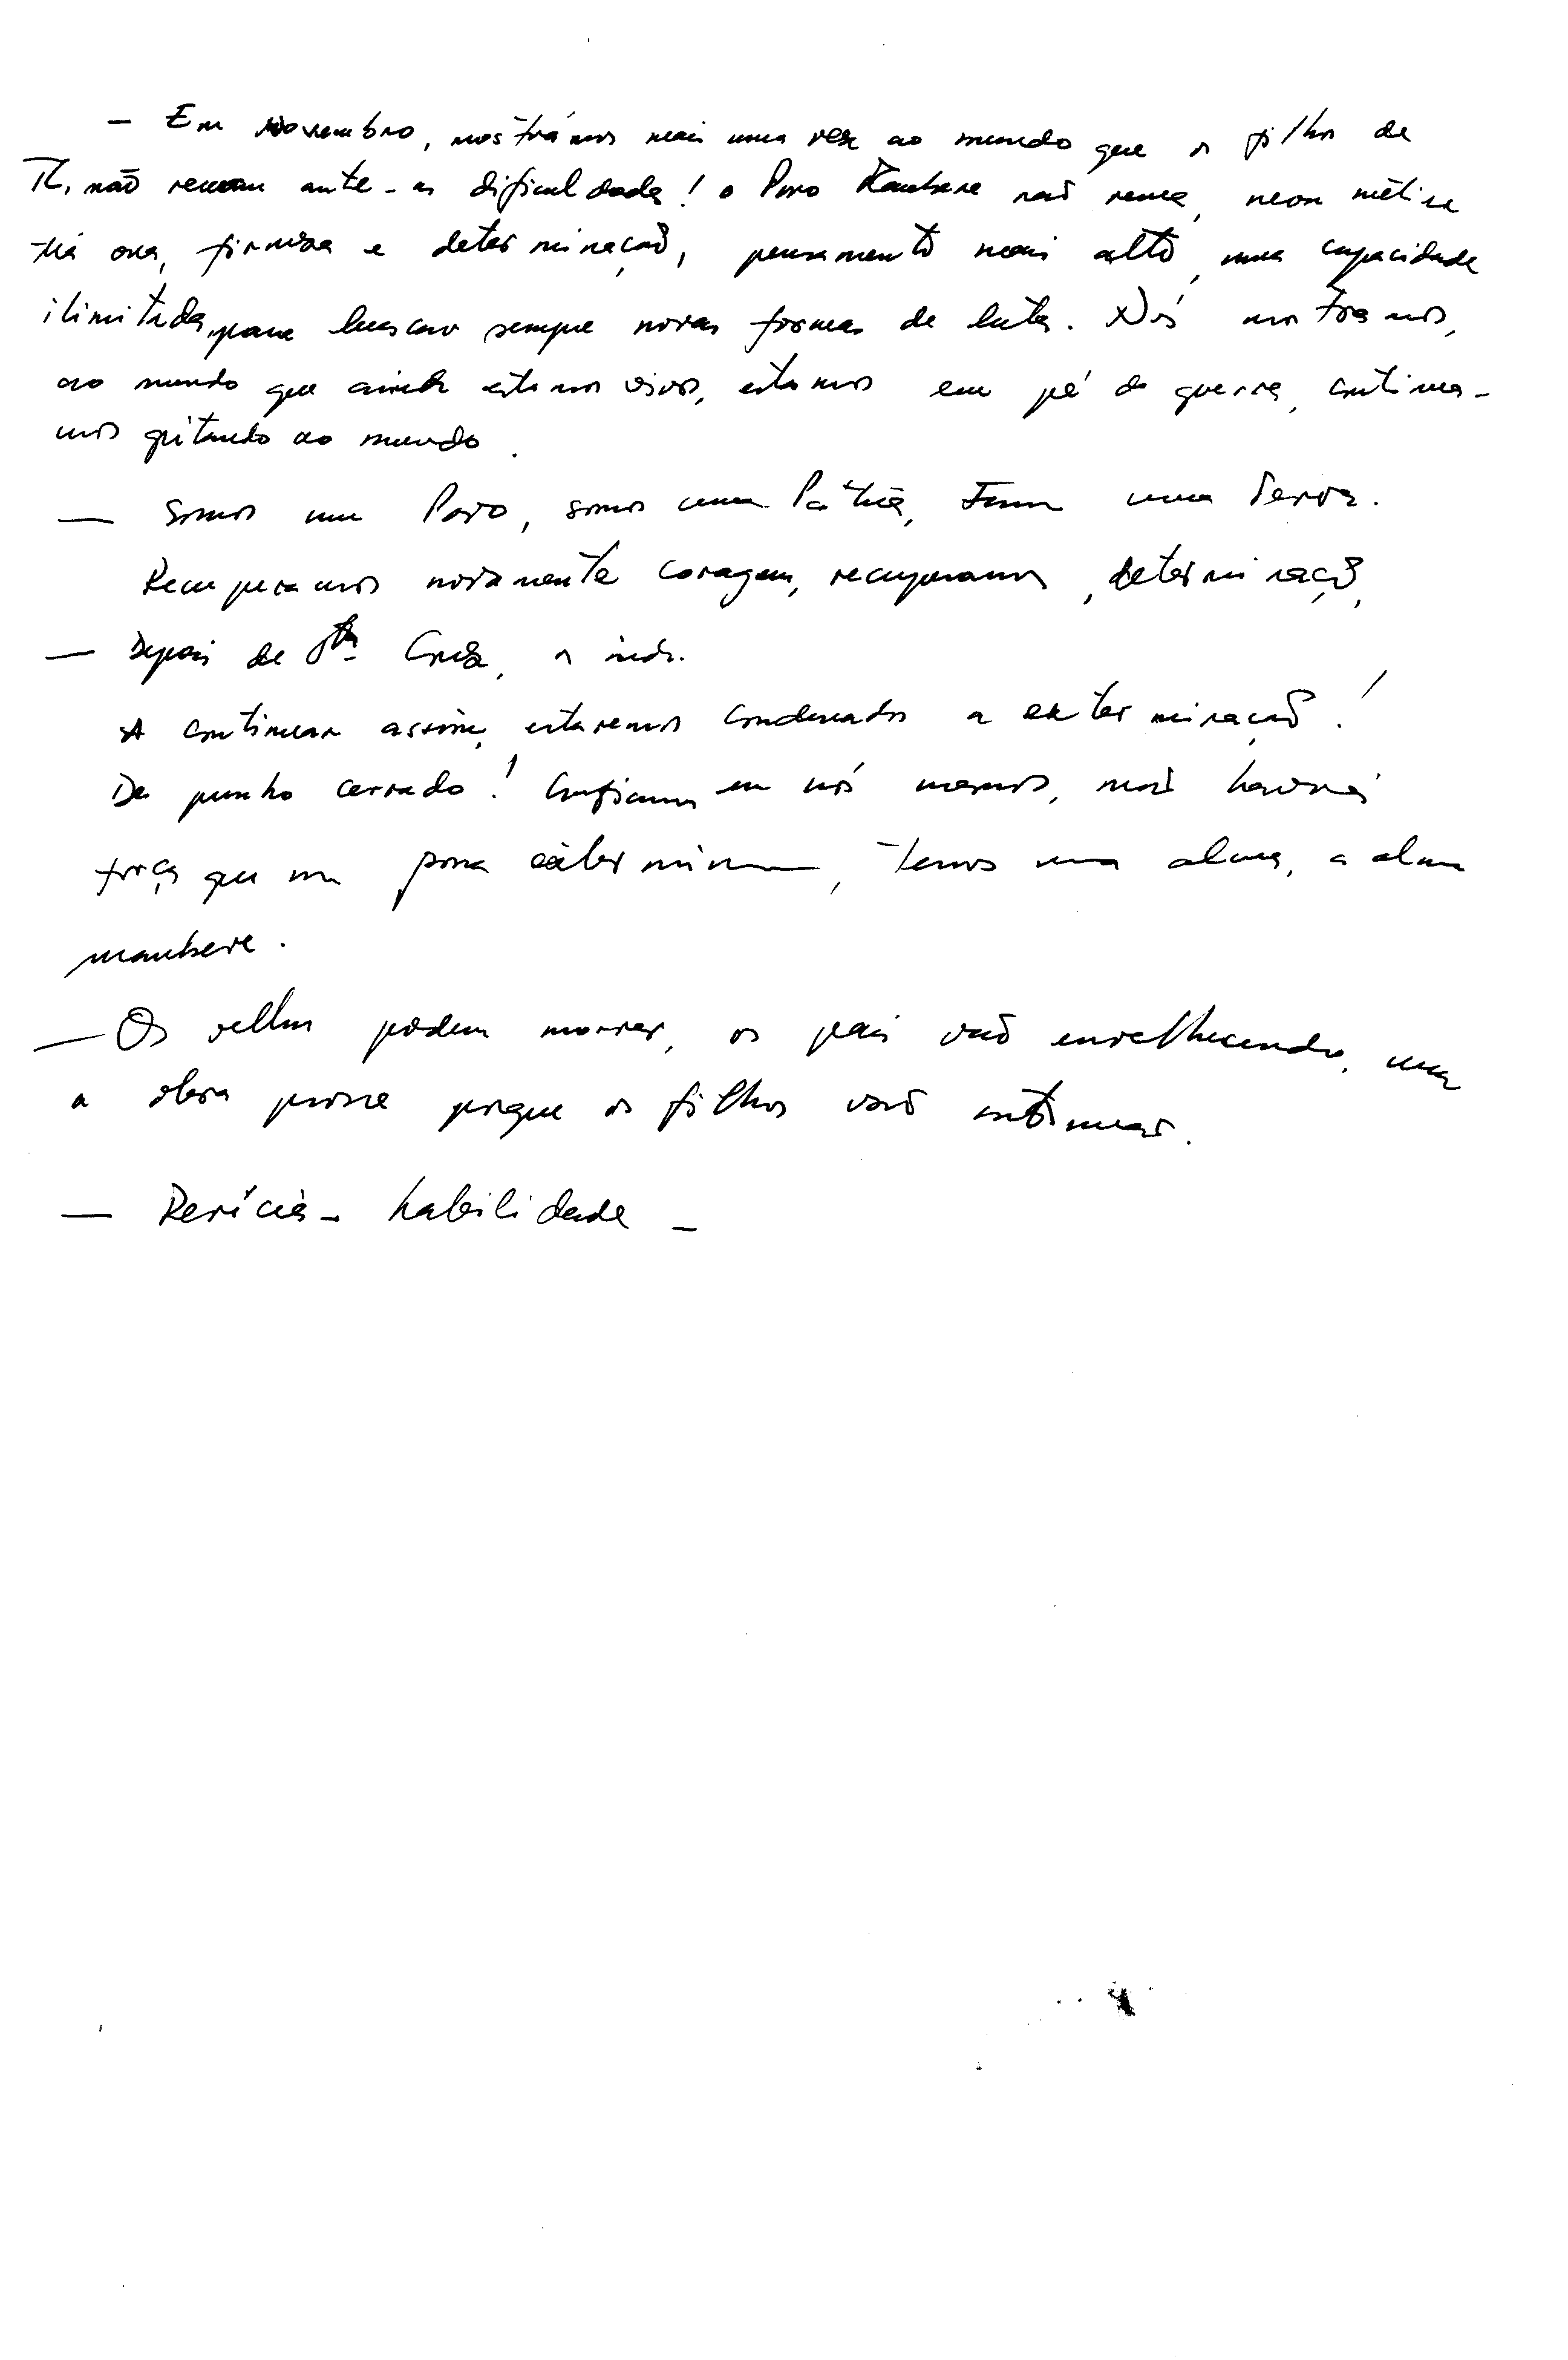 - Em Novembro, mostrámos mais uma vez ao mundo que os filhos de
TL, não recuam ante as dificuldades! o Povo Maubere não recua, nem
firmeza e determinação, pensamento mais alto, uma capacidade
ilimitada, para buscar sempre novas formas de luta. Nós mostramos,
ao mundo que ainda estamos vivos, estamos em pé de guerra, continua-
mos gritando ao mundo.
— Somos um Povo, somos uma Pátria, Temos uma Terra.
Recuperamos novamente coragem, recuperamos, determinação,
— Depois de Sta Cruz, a ind.
A continuar assim, estaremos condenados a exterminação!
De punho cerrado! Confiamos em nós mesmos, não haverá
força que nos possa exterminar, temos uma alma, a alma
maubere.
— Os velhos podem morrer, os pais vão envelhecendo, mas
a obra prosse porque os filhos vão continuar.
— Perícia - habilidade -